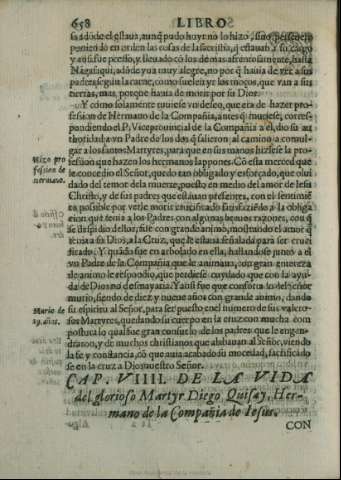 658 LIBRO
sa adōde el estaua, aunq̄ pudo huyr no lo hizo, sino perseuerò
poniendo en orden las cosas de la sacristia, q̄ estauan a su cargo
y assi fue presso, y lleuado cō los demas afrentosamente, hasta
Nāgasaqui, adōde yua muy alegre, no por q̄ hauia de ver a sus
padres segun la carne, como suelen yr los moços, que van a sus
tierras, mas, porque hauia de morir por su Dios.
Y como solamente tuuiesse vn deseo, que era de hazer pro-
fession de Hermano de la Compañia, antes q̄ muriesse, corres-
pondiendo el P. Viceprouincial de la Compañia a el, dio su au
thoridad a vn Padre de los dos q̄ salieron al camino a consolar
gar a los santos Martyres, para que en sus manos hiziesse la pro
fession que hazen los hermanos Iappones. Cō esta merced que
le concedio el Señor, quedo tan obligado y esforçado, que olui
dado del temor de la muerte, puesto en medio del amor de Iesu
Christo, y de sus padres que estauan presentes, con el sentimiē
to possible por verle morir crucificado satisfiziēdo a la obliga
cion que tenia a los Padres con algunas buenas razones, con q̄
se despidio dellos, fue con grande animo, mostrando el amor q̄
tenia a su Dios, a la Cruz, que le estaua señalada para ser cruci
ficado. Y quādo fue enarbolado en ella, hallandose junto a el
vn Padre de la Compañia que le animaua, con gran entereza
de animo le respondio, que perdiesse cuydado que con la ayu-
da de Dios no desmayaria. Y assi fue que confortādolo el señor
murio, siendo de diez y nueue años con grande animo, dando
su espiritu al Señor, para ser puesto en el numero de sus valero-
sos Martyres, quedando su cuerpo en la cruz con mucha com
postura lo qual fue gran consuelo de los padres que le engen-
draron, y de muchos christianos que alabauan al Señor, viendo
la fe y constancia, cō que auia acabado su mocedad, sacrificādo
se en la cruz a Dios nuestro Señor.
Hizo pro
fession de
hermano.
Murio de
19. años.
CAP. VIIII. DE LA VIDA
del glorioso Martyr Diego Quisay, Her-
mano de la Compañia de Iesus.
CON